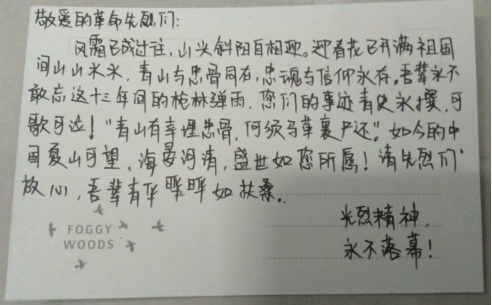 敬爱的革命先烈们:
风霜已成过往，山头斜阳自相迎。迎春花已开满祖国
间山山水水，青山与忠骨同在，忠魂与信仰永存。吾辈永不
敢忘这十三年间的枪林弹雨，您们的事迹青史永撰，可
歌可泣！“青山有幸埋忠骨，何须马革裹尸还”。如今的中
国夏山可望，海晏河清，盛世如您所愿！请先烈们
放心，吾辈青年晔晔如扶桑。
先烈精神，
永不落幕！
FOGGY
WOODS